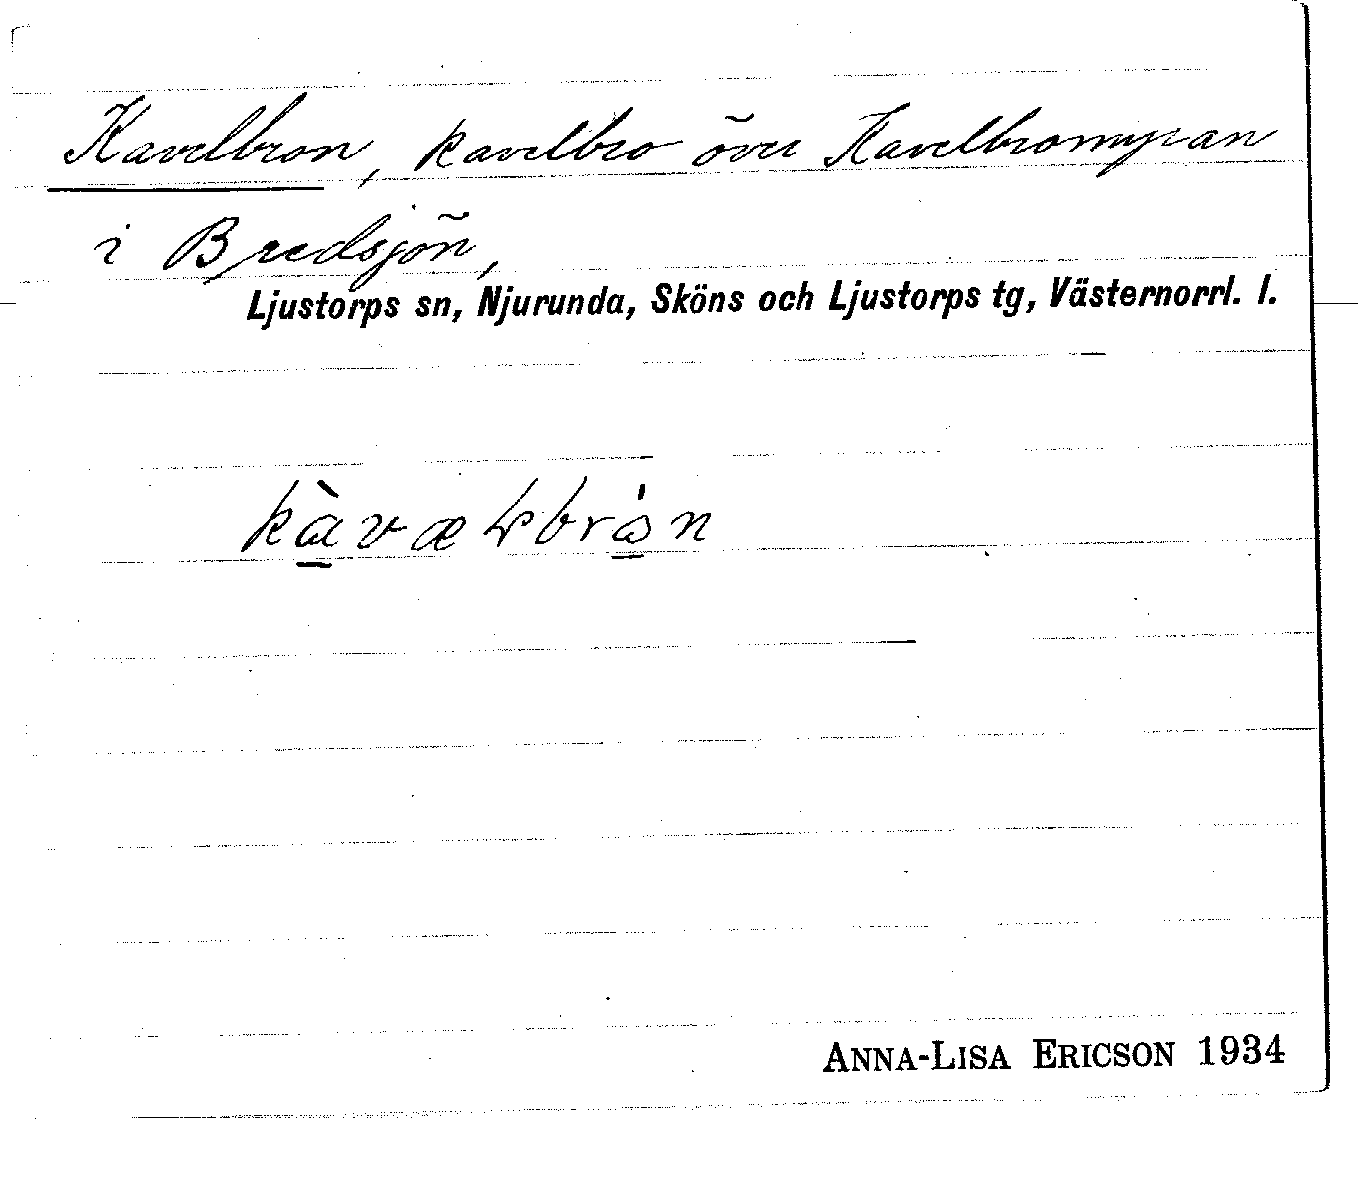 Kavelbron, kavelbro över Kavelbromyran
i Bredsjön,
Ljustorps sn, Njurunda, Sköns och Ljustorps tg, Västernorrl. l.
ANNA-LISA ERICSON 1934